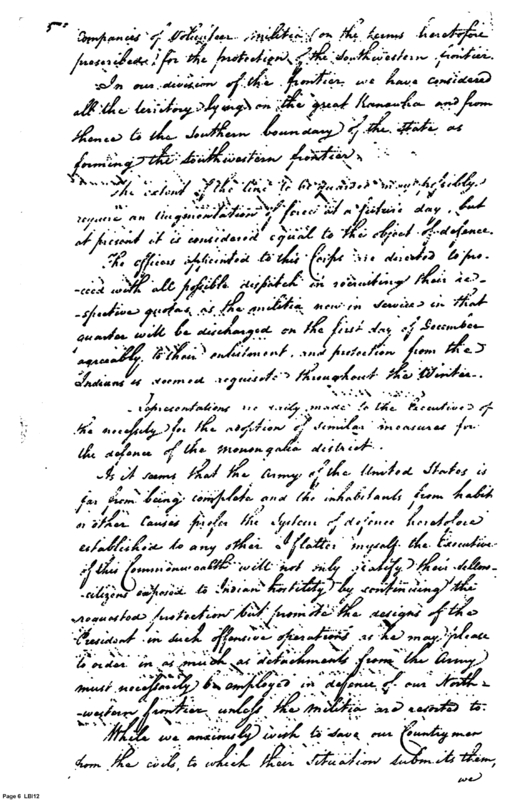 5
Companies of Volunteer militia (on the terms heretofore
prescribed) for the protection of the Southwestern frontier.
In our division of the frontier we have considered
all the territory lying on the great Kanawha and from
thence to the Southern boundary of the State as
forming the Southwestern frontier.
The extent of the line to be guarded may possibly
require an augmentation of force at a future day, but
at present it is considered equal to the object of defence.
The officers appointed to this Corps are directed to pro-
-ceed with all possible dispatch in recruiting their re-
-spective quotas, as the militia now in service in that
quarter will be discharged on the first day of December
agreeably to their enlistment, and protection from the
Indians is deemed requisite throughout the Winter.
Representations are daily made to the Executive of
the necessity for the adoption of similar measures for
the defence of the Monongalia district.
As it seems that the Army of the United States is
far from being complete and the inhabitants from habit
or other causes prefer the System of defence heretofore
established to any other I flatter myself the Executive
of this Commonwealth will not only gratify their fellow-
-citizens exposed to Indian hostility by continuing the
requested protection but promote the designs of the
President in such offensive operations as he may please
to order in as much as detachments from the Army
must necessarily be employed in defence of our North-
-western frontier unless the militia are resorted to.
While we anxiously wish to save our Countrymen
from the evils, to which their Situation submits them,
we
Page 6 LBI12